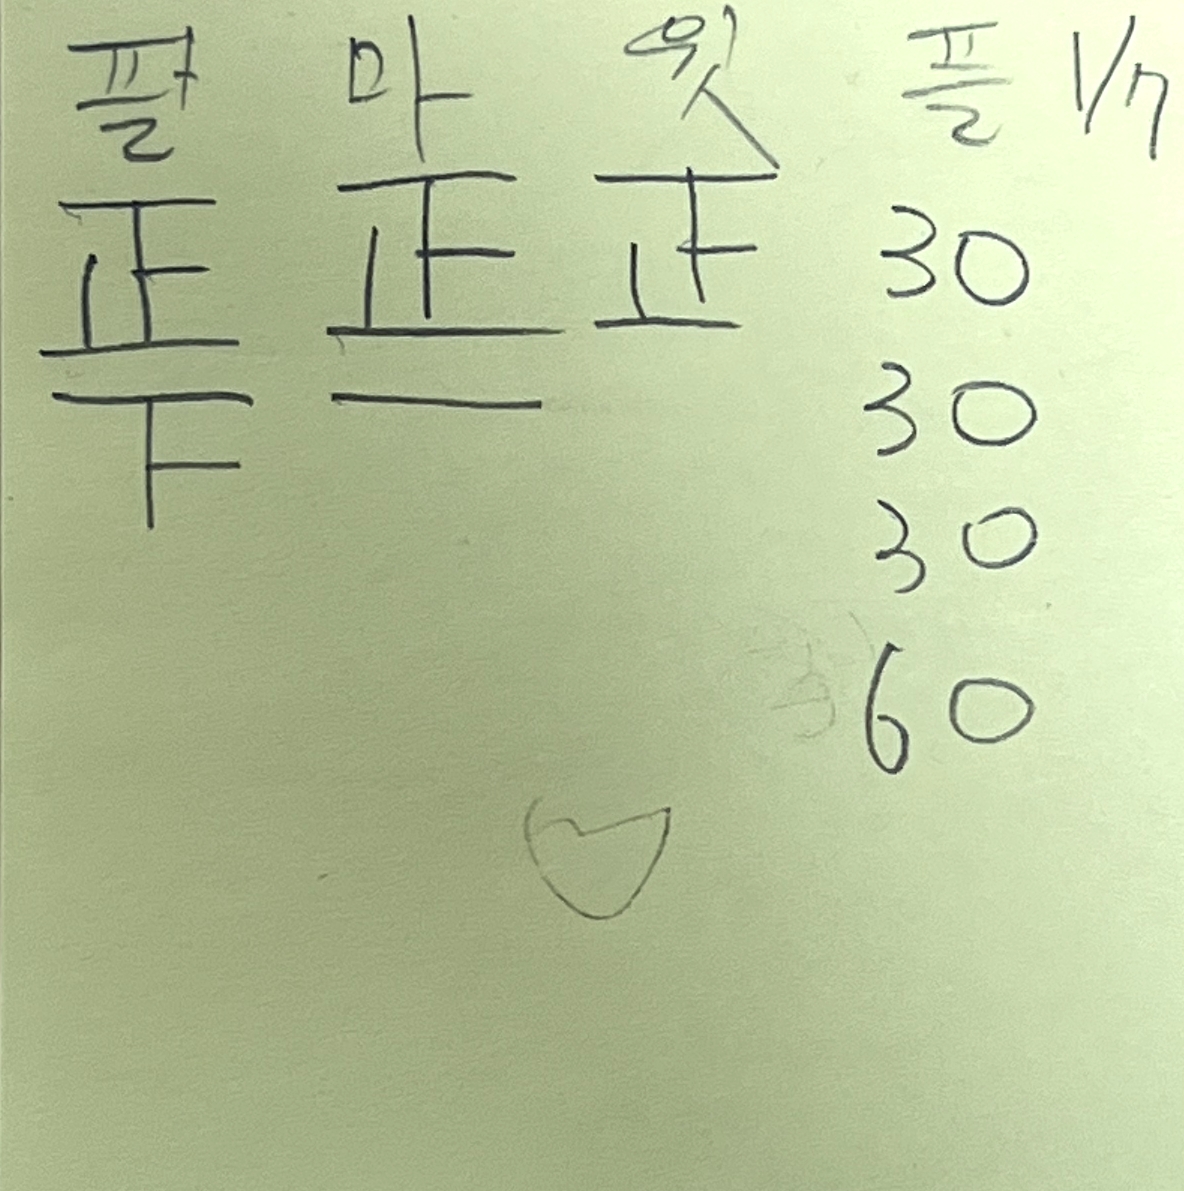 팔 마 윗 플 1/n
正 正 正 30
下 一 30
30
60